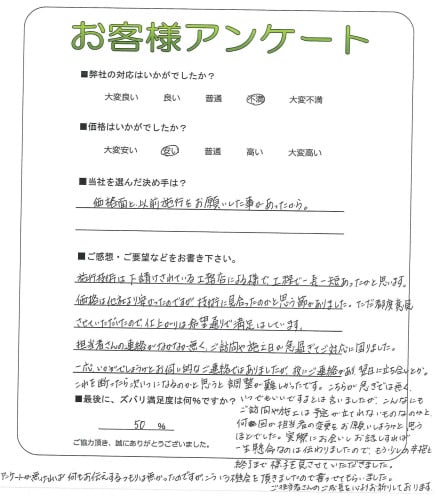 お客様アンケート
■弊社の対応はいかがでしたか？
大変良い 良い 普通 不満 大変不満
■価格はいかがでしたか？
大変安い 安い 普通 高い 大変高い
■当社を選んだ決め手は？
価格面と、以前施行をお願いした事があったから。
■ご感想・ご要望などをお書き下さい。
施行技術は下請けされている工務店にも様で、工程で一長一短あったかと思います。
価格は他社より安かったのですが技術に見合ったのかと思う節がありました。ただ都度意見
させていただいたので、仕上がりは希望通りで満足はしています。
担当者さんの連絡がなかなか無く、ご訪問や施工日が急過ぎてご対応に困りました。
一応、いかがでしょうか？とお伺い的なご連絡ではありましたが、夜にご連絡があり翌日に立ち合いとか。
これを断ったら次いつになるのかと思うと調整が難しかったです。こちらが急ぎでは無く、
いつでもいいですよとは言いましたが、こんなにも
ご訪問や施工は予定が立てれないものなのかと、
何回の担当者の変更をお願いしようかと思う
ほどでした。実際にお会いしお話しすれば
一生懸命なのは伝わりましたので、もう少しの辛抱と
終了まで様子を見させていただきました。
■最後に、ズバリ満足度は何％ですか？
50 ％
ご協力頂き、誠にありがとうございました。
アンケートが無ければ何もお伝えするつもりは無かったのですが、こういう機会を頂きましたので書かせてもらいました。
ご担当者さんのご成長を心よりお祈りしております。